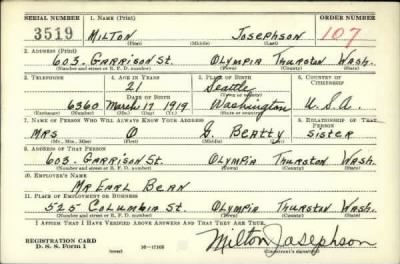 SERIAL NUMBER 1. NAME (Print) ORDER NUMBER
3519 MILTON JOSEPHSON 107
(First) (Middle) (Last)
2. ADDRESS (Print)
603 GARRISON ST. OLYMPIA THURSTON WASH.
(Number and street or R. F. D. number) (Town) (County) (State)
3. TELEPHONE 4. AGE IN YEARS 5. PLACE OF BIRTH 6. COUNTRY OF CITIZENSHIP
21 Seattle
DATE OF BIRTH (Town or county)
6360 March 17 1919 Washington U.S.A.
(Exchange) (Number) (Mo.) (Day) (Yr.) (State or country)
7. NAME OF PERSON WHO WILL ALWAYS KNOW YOUR ADDRESS 8. RELATIONSHIP OF THAT PERSON
MRS O G. BEATTY SISTER
(Mr., Mrs., Miss) (First) (Middle) (Last)
9. ADDRESS OF THAT PERSON
603 GARRISON ST. OLYMPIA THURSTON WASH.
(Number and street or R. F. D. number) (Town) (County) (State)
10. EMPLOYER'S NAME
MR EARL BEAN
11. PLACE OF EMPLOYMENT OR BUSINESS
525 COLUMBIA ST. OLYMPIA THURSTON WASH.
(Number and street or R. F. D. number) (Town) (County) (State)
I AFFIRM THAT I HAVE VERIFIED ABOVE ANSWERS AND THAT THEY ARE TRUE.
REGISTRATION CARD
D. S. S. Form 1 (over) Milton Josephson
(Registrant's signature)